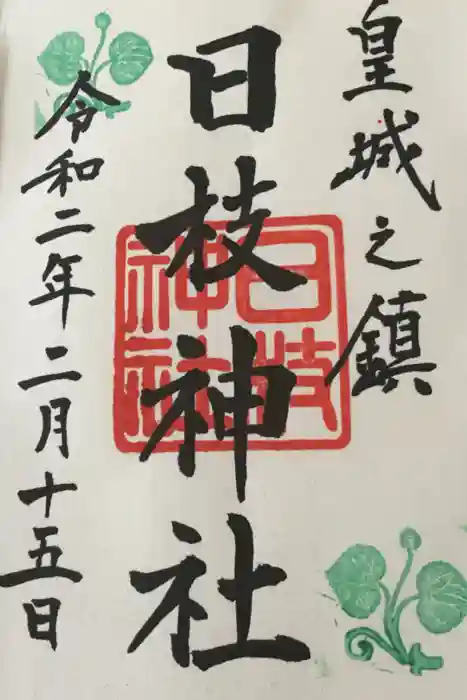 皇城之鎮
日枝神社
日枝神社
令和二年二月十五日